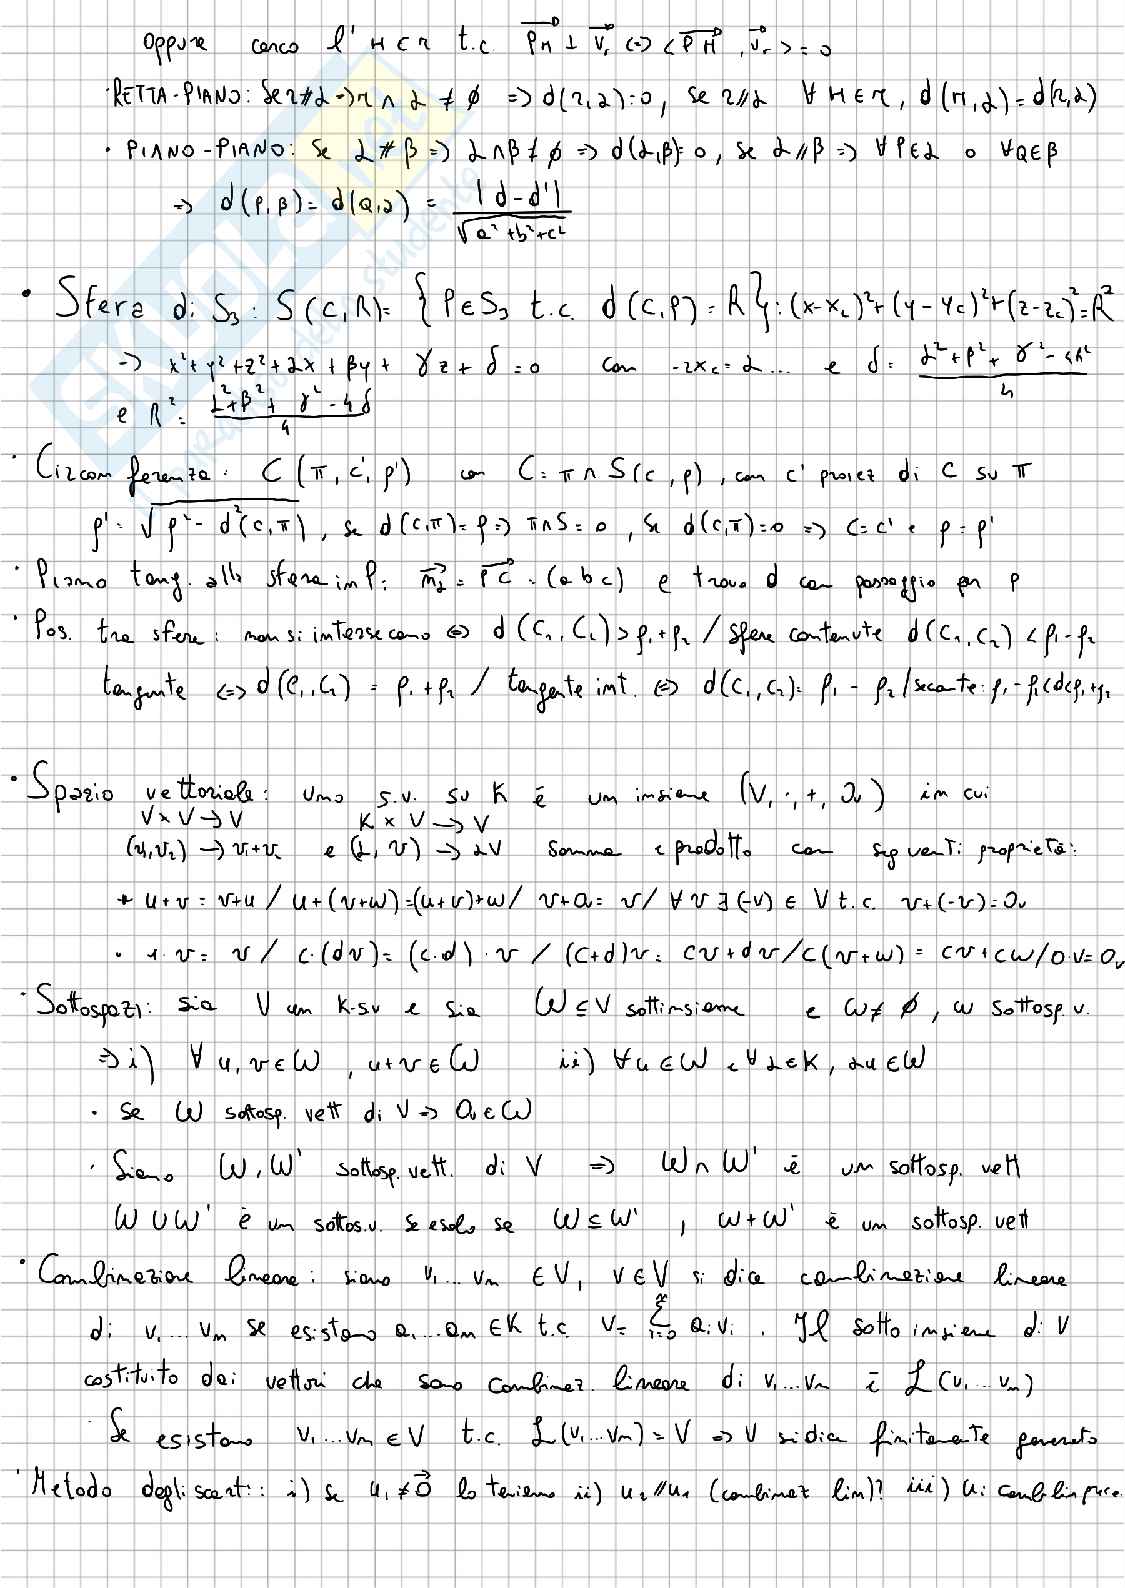 oppure cerco l' H ∈ r t.c. PH ⊥ Vr <=> <PH, Vr> = 0
· RETTA-PIANO: Se r ∦ α -> r ∩ α ≠ ∅ => d(r,α)=0, se r//α ∀ H ∈ r, d(H,α) = d(r,α)
· PIANO-PIANO: Se α ∦ β => α ∩ β ≠ ∅ => d(α,β)=0, se α//β => ∀P∈α o ∀Q∈β
=> d(P,β) = d(Q,α) = |d-d'| / √(a²+b²+c²)
• Sfera di S₃: S(C,R) = {P∈S₃ t.c. d(C,P) = R}: (x-xc)²+(y-yc)²+(z-zc)²=R²
-> x²+y²+z²+αx+βy+γz+δ=0 con -2xc=α... e δ= (α²+β²+γ²-4R²)/4
e R²= (α²+β²+γ²-4δ)/4
· Circonferenza: C(π, c', ρ') con C=π∩S(c,ρ), con c' proiez di C su π
ρ' = √(ρ²-d²(c,π)), se d(c,π)=ρ => π∩S=0, se d(c,π)=0 => C=c' e ρ=ρ'
· Piano tang. alla sfera in P: nα = PC = (a b c) e trovo d con passaggio per P
· Pos. tra sfere: non si intersecano <=> d(C₁,C₂)>ρ₁+ρ₂ / sfere contenute d(C₁,C₂)<ρ₁-ρ₂
tangente <=> d(C₁,C₂) = ρ₁+ρ₂ / tangente int. <=> d(C₁,C₂)= ρ₁-ρ₂ / secante: ρ₁-ρ₂<d<ρ₁+ρ₂
· Spazio vettoriale: Uno s.v. su K è un insieme (V, ·, +, 0v) in cui
V×V->V K×V->V
(v₁,v₂) -> v₁+v₂ e (α,v) -> αv somma e prodotto con seguenti proprietà:
+ u+v = v+u / u+(v+w)=(u+v)+w / v+0=v / ∀v ∃(-v) ∈ V t.c. v+(-v)=0v
· 1·v=v / c·(dv)=(c·d)·v / (c+d)v=cv+dv / c(v+w)=cv+cw / 0·v=0v
· Sottospazi: sia V un K-sv e sia W⊆V sottinsieme e W≠∅, W sottosp v.
=> i) ∀u,v∈W, u+v∈W ii) ∀u∈W e ∀α∈K, αu∈W
· Se W sottosp. vett di V => 0v∈W
· Siano W, W' sottosp. vett. di V => W∩W' è un sottosp. vett
W∪W' è un sottos.v. se e solo se W⊆W', W+W' è un sottosp. vett
· Combinazione lineare: siano v₁...vn ∈V, v∈V si dice combinazione lineare
di v₁...vn se esistono a₁...an ∈K t.c. v=Σⁿi=0 aivi. Il sottoinsieme di V
costituito dai vettori che sono combinaz. lineare di v₁...vn è L(v₁...vn)
· Se esistono v₁...vn∈V t.c. L(v₁...vn)=V => V si dice finitamente generato
· Metodo degli scarti: i) se u₁≠0 lo teniamo ii) u₂//u₁ (combinaz lin)? iii) ui comb lin prec.
SKUOLA